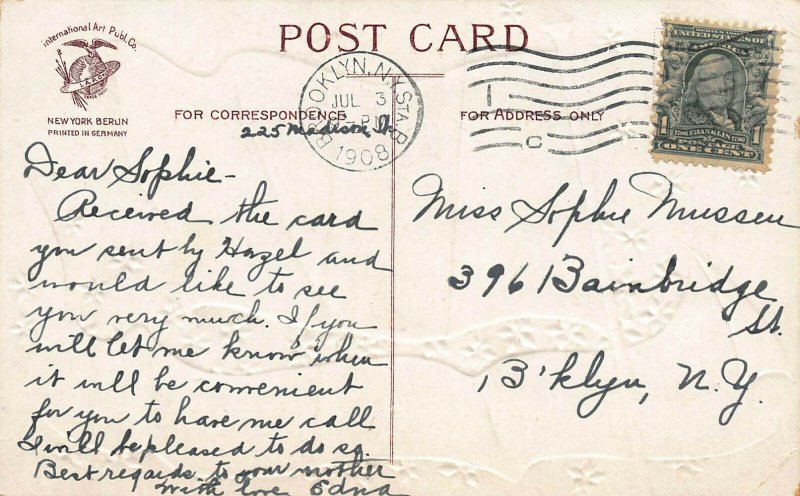 International Art Publ. Co.
NEW YORK BERLIN
PRINTED IN GERMANY
POST CARD
FOR CORRESPONDENCE
FOR ADDRESS ONLY
BROOKLYN, N.Y. STA. B
JUL 3
1908
1
C
1706 FRANKLIN 1790
POSTAGE
1 ONE CENT 1
225 Madison St.
Dear Sophie-
Received the card
you sent by Hazel and
would like to see
you very much. If you
will let me know when
it will be convenient
for you to have me call
I will be pleased to do so.
Best regards to your mother
With love Edna
Miss Sophie Mussen
396 Bainbridge
St.
B'klyn, N.Y.